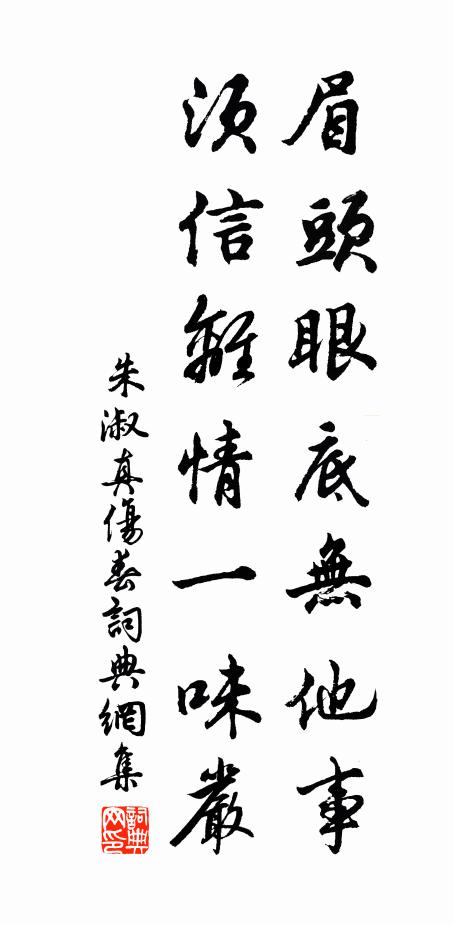 眉頭眼底無他事
須信離情一味嚴
朱淑真傷春詞典網集
詞典網印